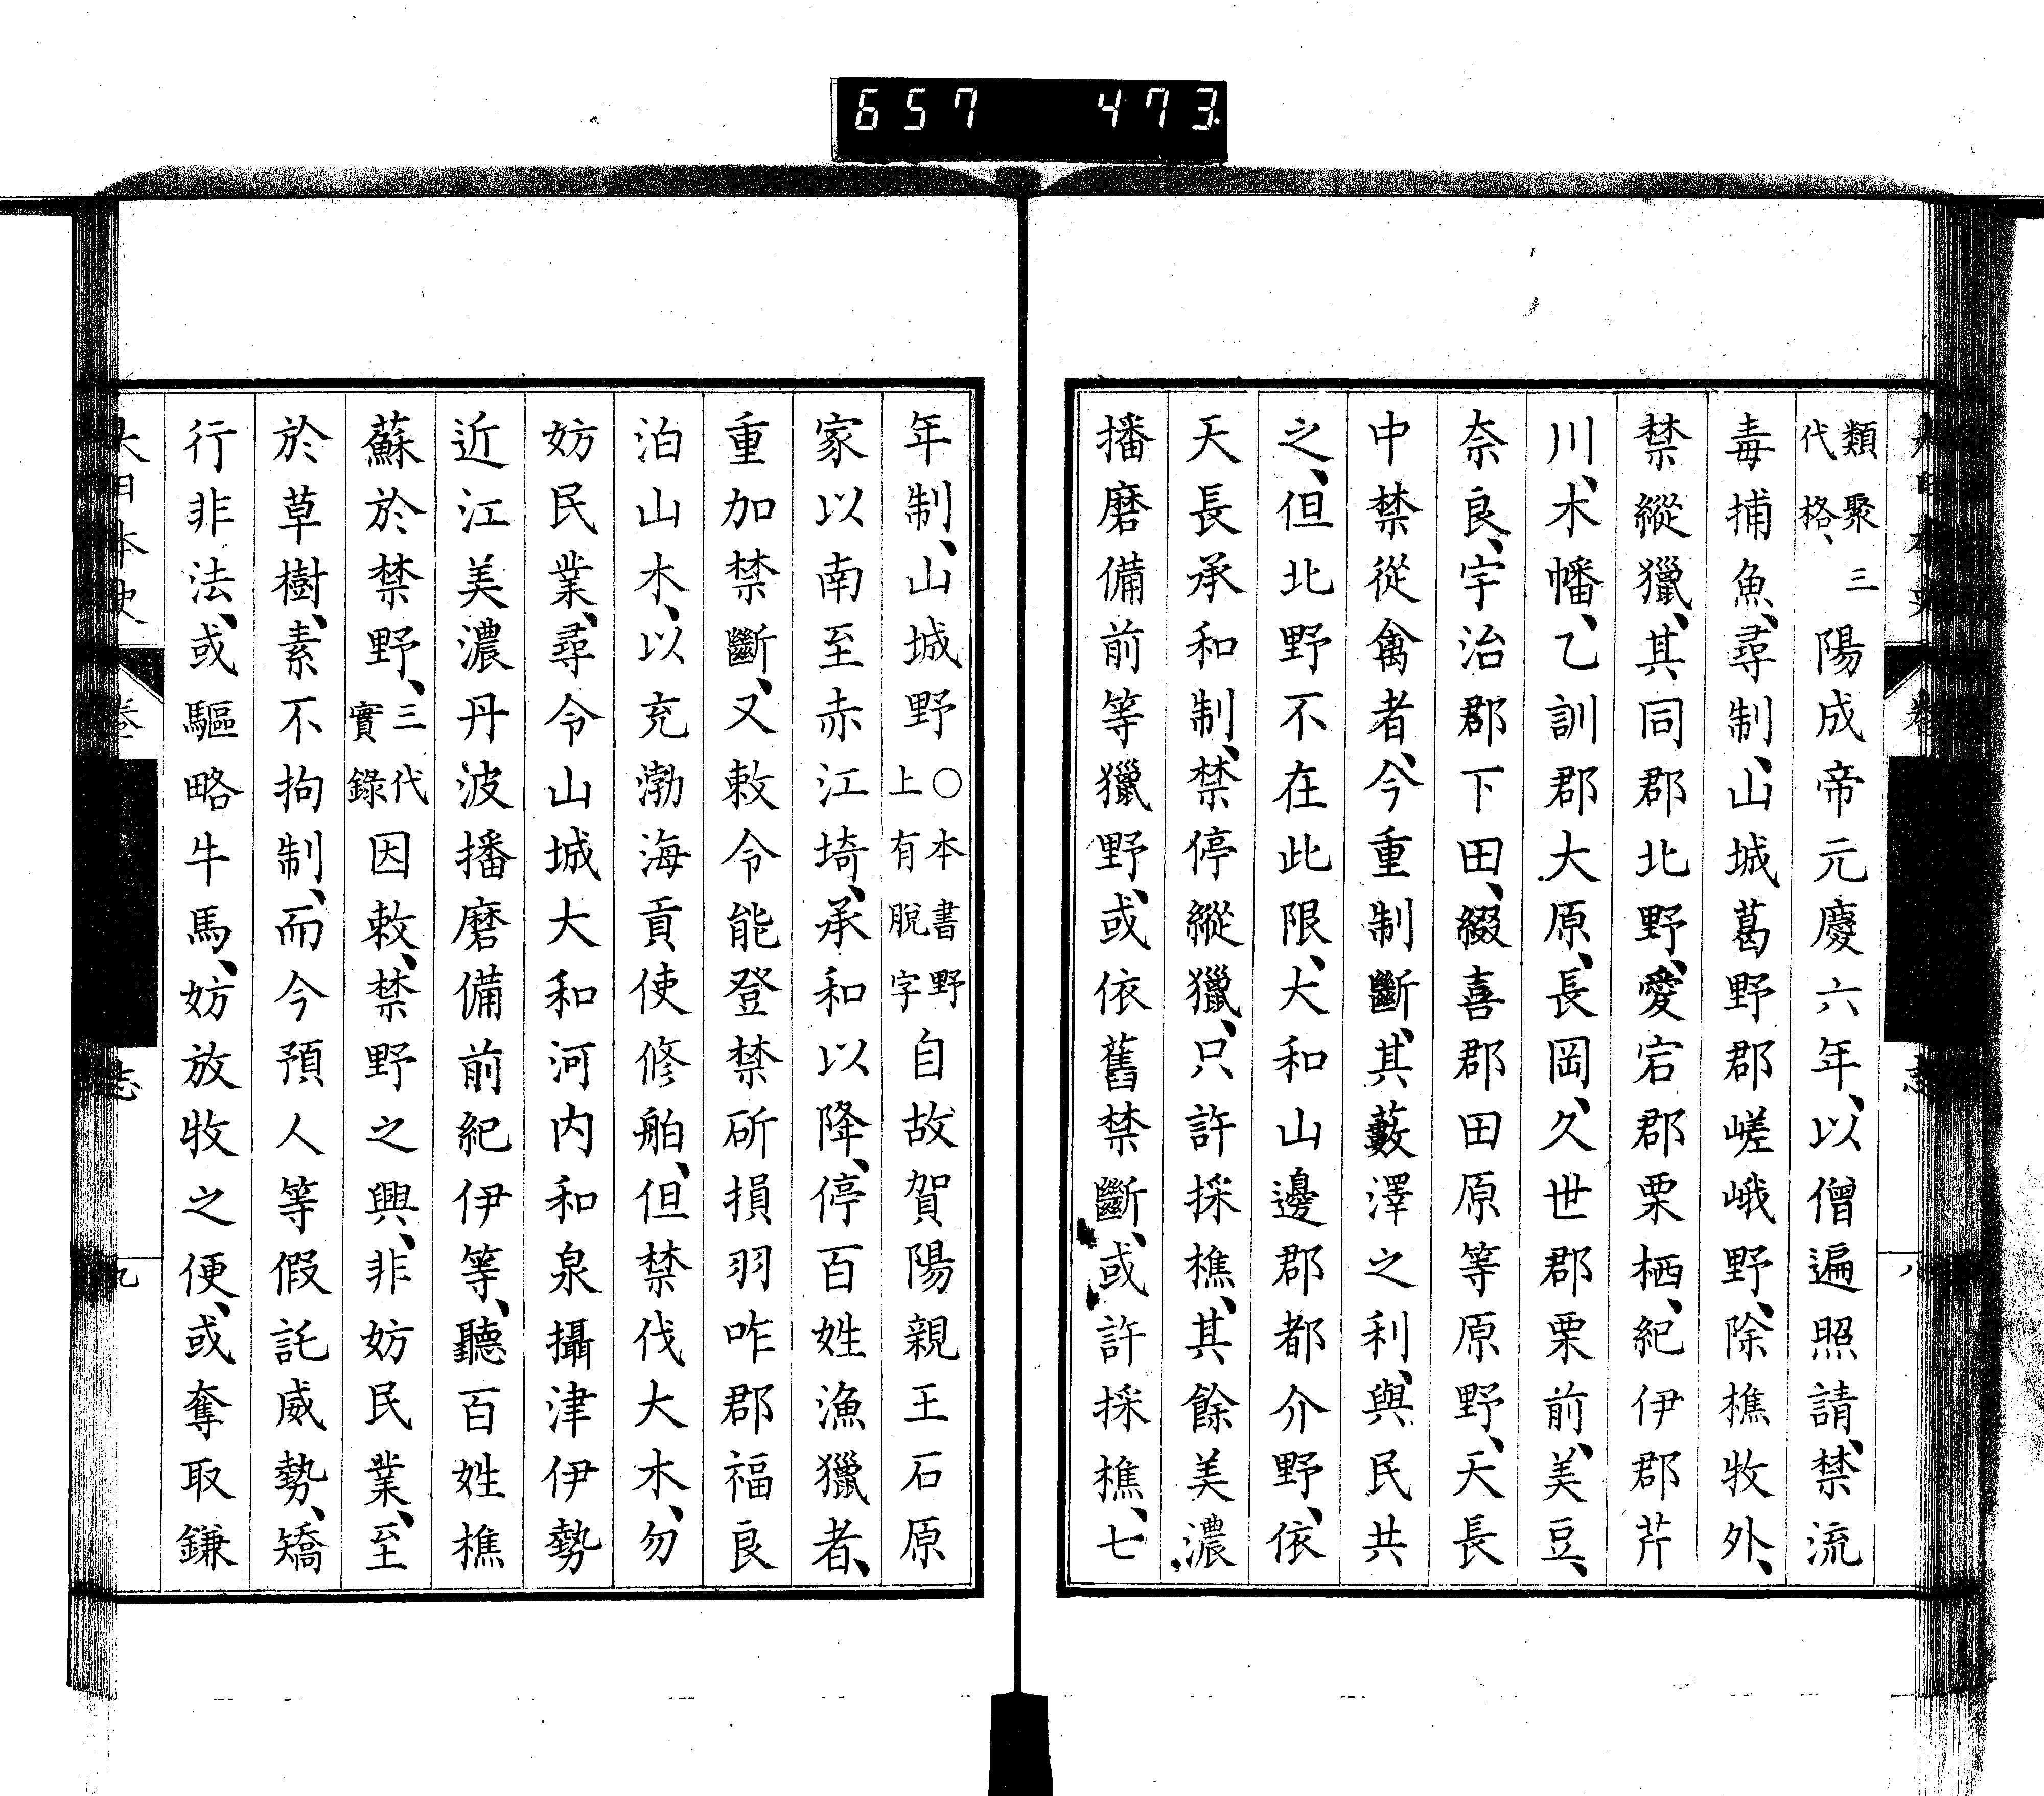 657 473
類聚三
代格、
陽成帝元慶六年、以僧遍照請、禁流
毒捕魚、尋制、山城葛野郡嵯峨野、除樵牧外、
禁縱獵、其同郡北野、愛宕郡栗栖、紀伊郡芹
川、木幡、乙訓郡大原、長岡、久世郡栗前、美豆、
奈良、宇治郡下田、綴喜郡田原等原野、天長
中禁從禽者、今重制斷、其藪澤之利、與民共
之、但北野不在此限、大和山邊郡都介野、依
天長承和制、禁停縱獵、只許採樵、其餘美濃
播磨備前等獵野、或依舊禁斷、或許採樵、七
年制、山城野
○本書野
上有脫字
自故賀陽親王石原
家以南至赤江埼、承和以降、停百姓漁獵者、
重加禁斷、又敕令能登禁斫損羽咋郡福良
泊山木、以充渤海貢使修舶、但禁伐大木、勿
妨民業、尋令山城大和河内和泉攝津伊勢
近江美濃丹波播磨備前紀伊等、聽百姓樵
蘇於禁野、
三代
實錄
因敕、禁野之興、非妨民業、至
於草樹、素不拘制、而今預人等假託威勢、矯
行非法、或驅略牛馬、妨放牧之便、或奪取鎌
大日本史
卷
志
九